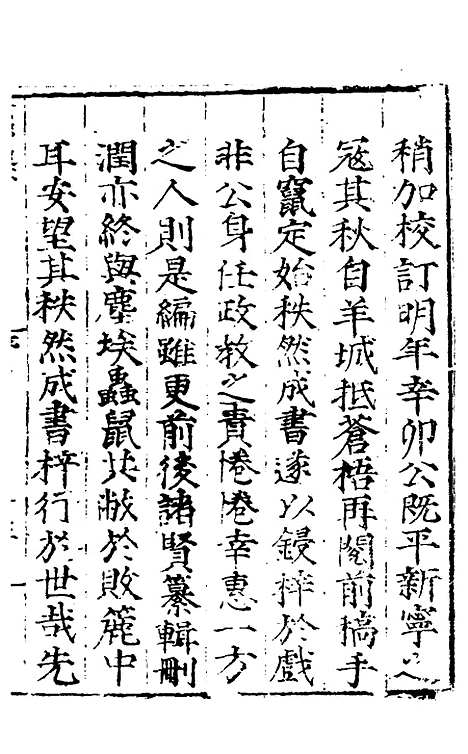 稍加校訂明年辛卯公既平新寧之
寇其秋自羊城抵蒼梧再閱前稿手
自竄定始秩然成書遂以鋟梓於戲
非公身任政教之責惓惓幸惠一方
之人則是編雖更前後諸賢纂輯刪
潤亦終與塵埃蟲鼠共敝於敗簏中
耳安望其秩然成書梓行於世哉先